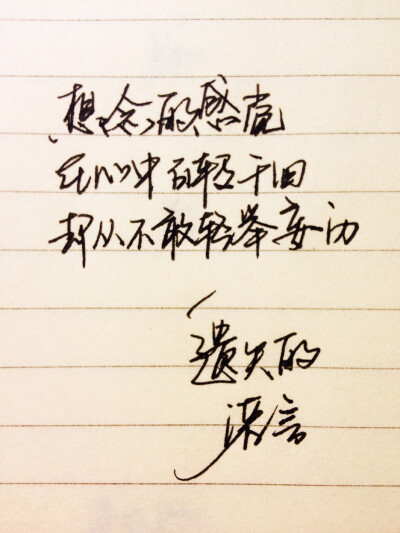 想念的感觉
在心中百转千回
却从不敢轻举妄动
遗失的
言